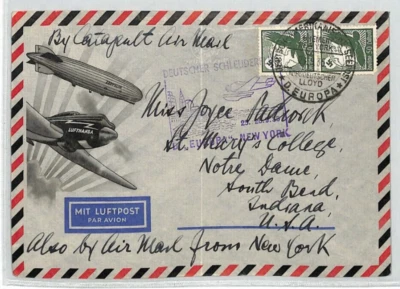 By Catapult Air Mail
DEUTSCHER SCHLEUDER
LLOYD
D. EUROPA
Miss Joyce
LUFTHANSA
D. EUROPA - NEW YORK
St. Mary's College,
Notre Dame,
South Bend,
Indiana,
U.S.A.
MIT LUFTPOST
PAR AVION
Also by Air Mail from New York